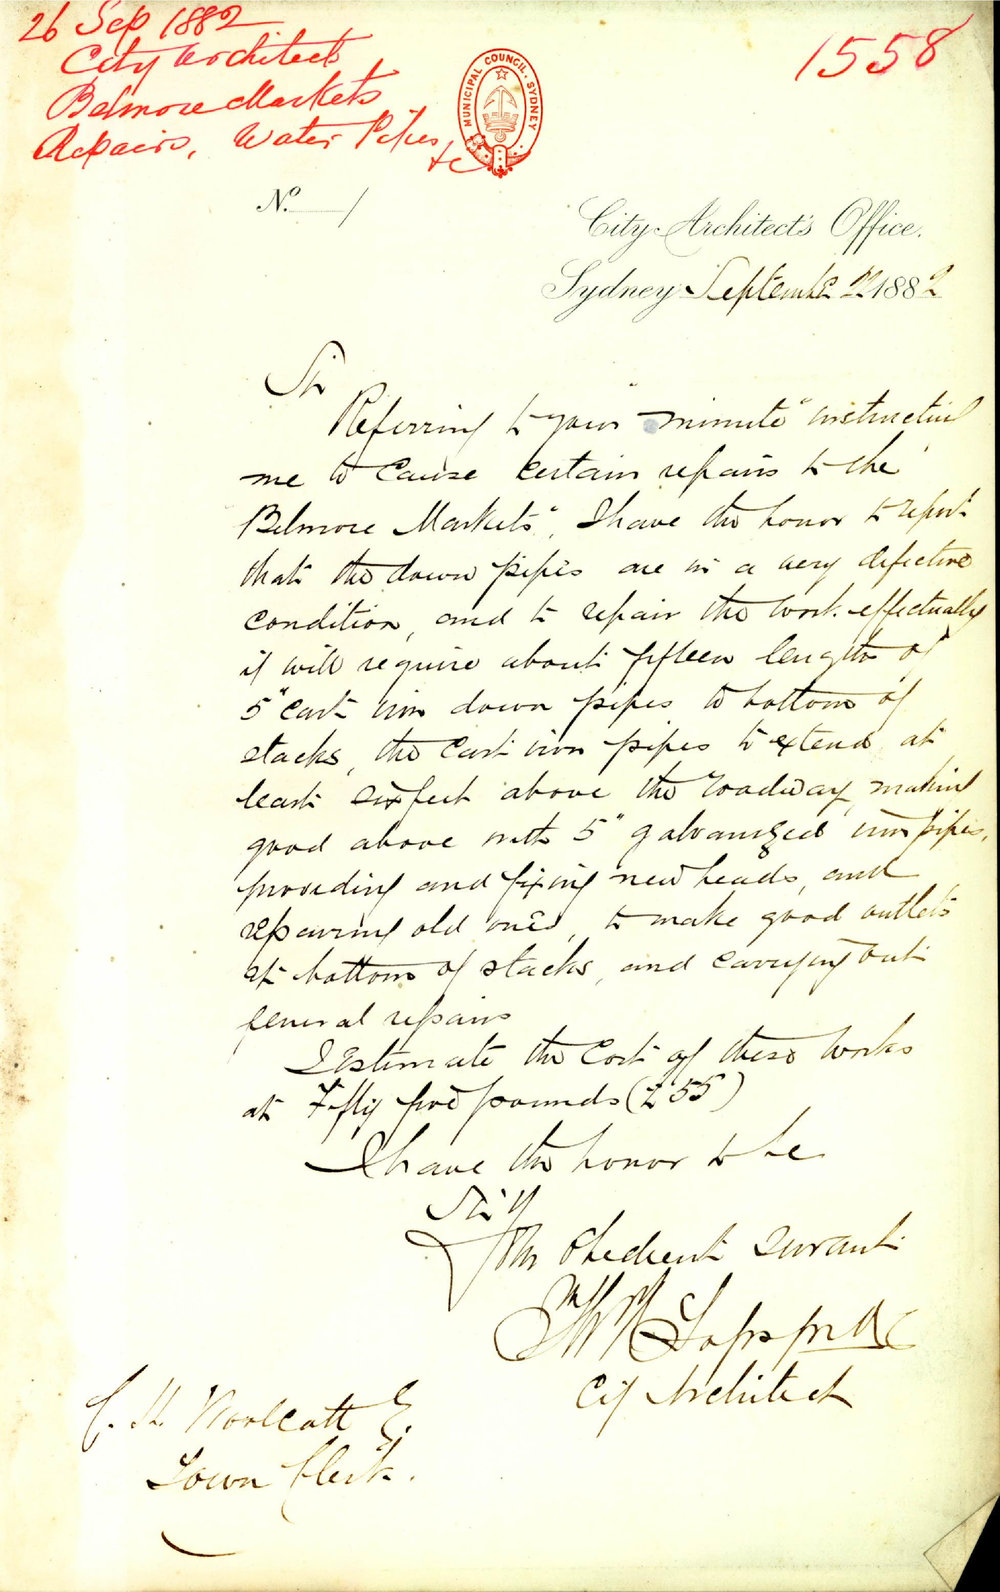 26 Sep 1882
City Architect
Belmore Markets
Repairs, Water Pipes
&c
1558
MUNICIPAL COUNCIL. SYDNEY
No. /
City Architect's Office.
Sydney September 1882
Sir
Referring to your "minute" instructing
me to cause certain repairs to the
Belmore Markets", I have the honor to report
that the down pipes are in a very defective
condition, and to repair the work effectually
it will require about fifteen lengths of
5" cast iron down pipes to bottom of
stacks, the cast iron pipes to extend at
least six feet above the roadway, making
good above with 5" galvanized iron pipes,
providing and fixing new heads, and
repairing old ones, to make good outlets
at bottom of stacks, and carrying out
general repairs
I Estimate the cost of these works
at Fifty five pounds (£55)
I have the honor to be
Sir
Your Obedient Servant
City Architect
C. H. Woolcott E.
Town Clerk.